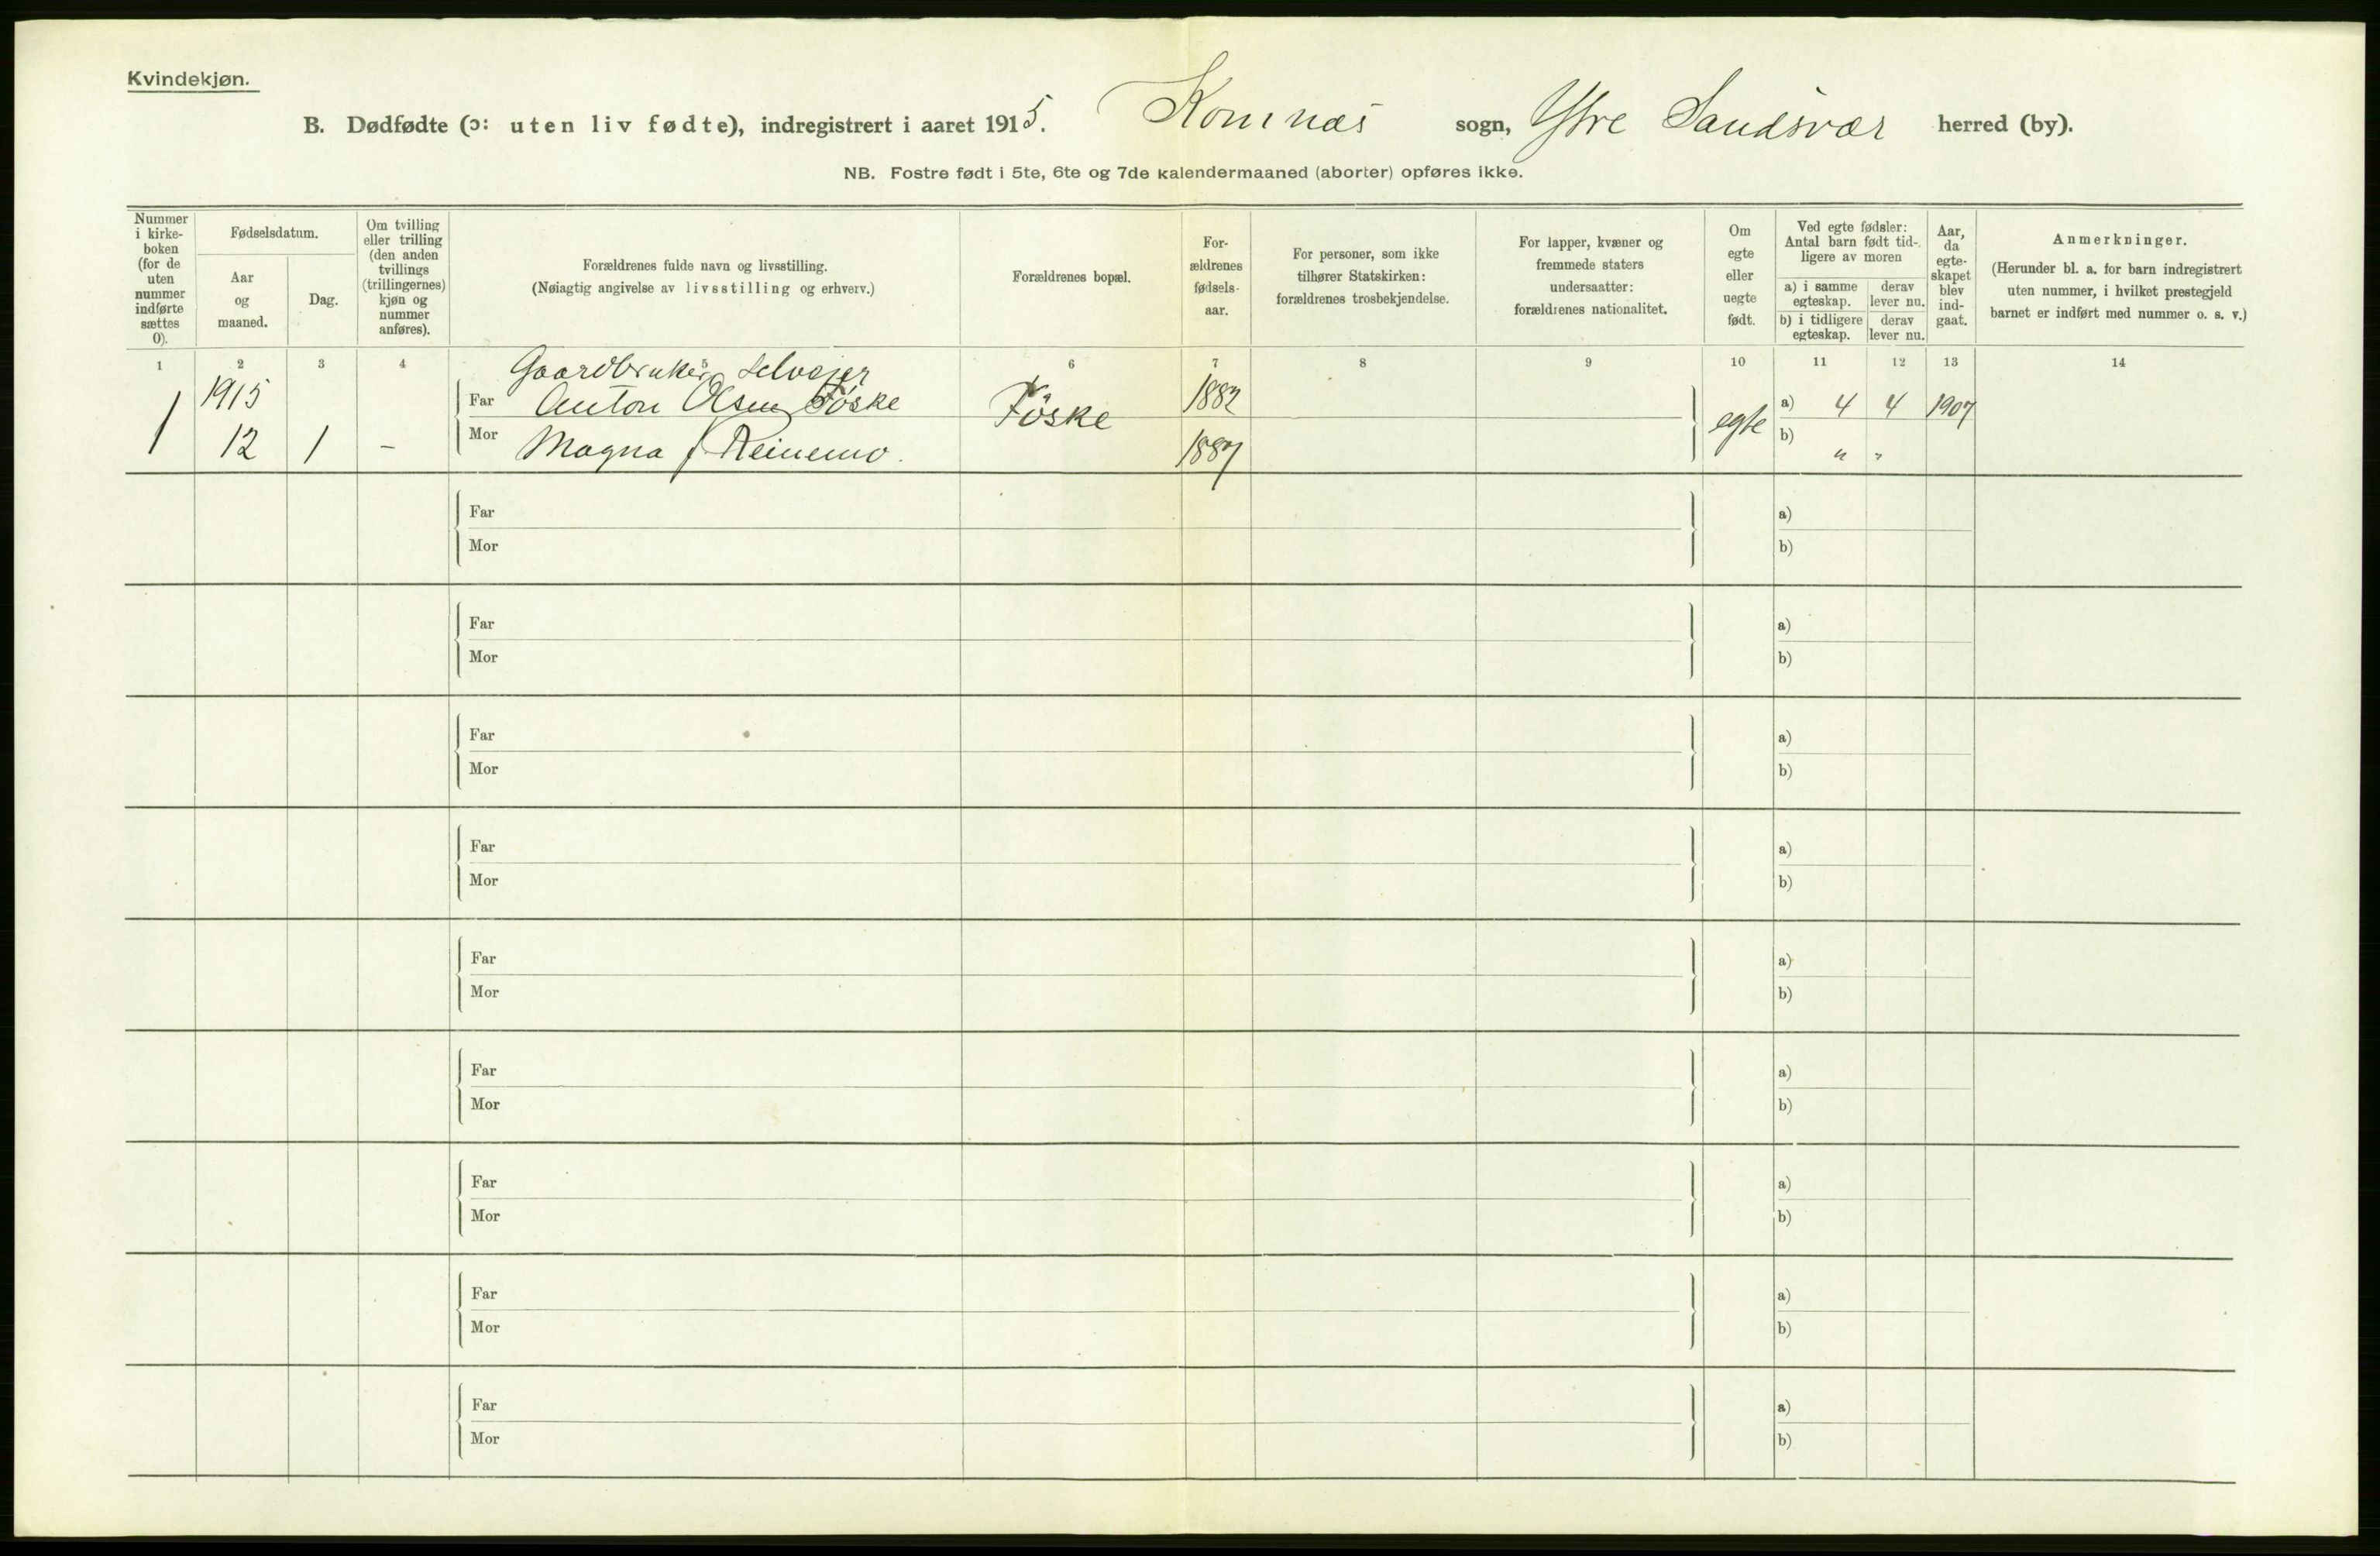 Kvindekjøn.
B. Dødfødte (ɔ: uten liv fødte), indregistrert i aaret 1915. Komnæs sogn, Ytre Sandsvær herred (by).
NB. Fostre født i 5te, 6te og 7de kalendermaaned (aborter) opføres ikke.
Nummer i kirke-boken (for de uten nummer indførte sættes 0).
Fødselsdatum.
Aar og maaned.
Dag.
Om tvilling eller trilling (den anden tvillings (trillingernes) kjøn og nummer anføres).
Forældrenes fulde navn og livsstilling.
(Nøiagtig angivelse av livsstilling og erhverv.)
Forældrenes bopæl.
For-ældrenes fødsels-aar.
For personer, som ikke tilhører Statskirken: forældrenes trosbekjendelse.
For lapper, kvæner og fremmede staters undersaatter: forældrenes nationalitet.
Om egte eller uegte født.
Ved egte fødsler: Antal barn født tid-ligere av moren
a) i samme egteskap.
derav lever nu.
b) i tidligere egteskap.
derav lever nu.
Aar, da egte-skapet blev ind-gaat.
Anmerkninger.
(Herunder bl. a. for barn indregistrert uten nummer, i hvilket prestegjeld barnet er indført med nummer o. s. v.)
1 2 3 4 5 6 7 8 9 10 11 12 13 14
Gaardbruker Selveier
1915 Far Anton Olsen Föske Föske 1882 a) 4 4 1907
1 12 1 – Mor Magna f. Reinemo. 1887 egte b) " "
Far a)
Mor b)
Far a)
Mor b)
Far a)
Mor b)
Far a)
Mor b)
Far a)
Mor b)
Far a)
Mor b)
Far a)
Mor b)
Far a)
Mor b)
Far a)
Mor b)